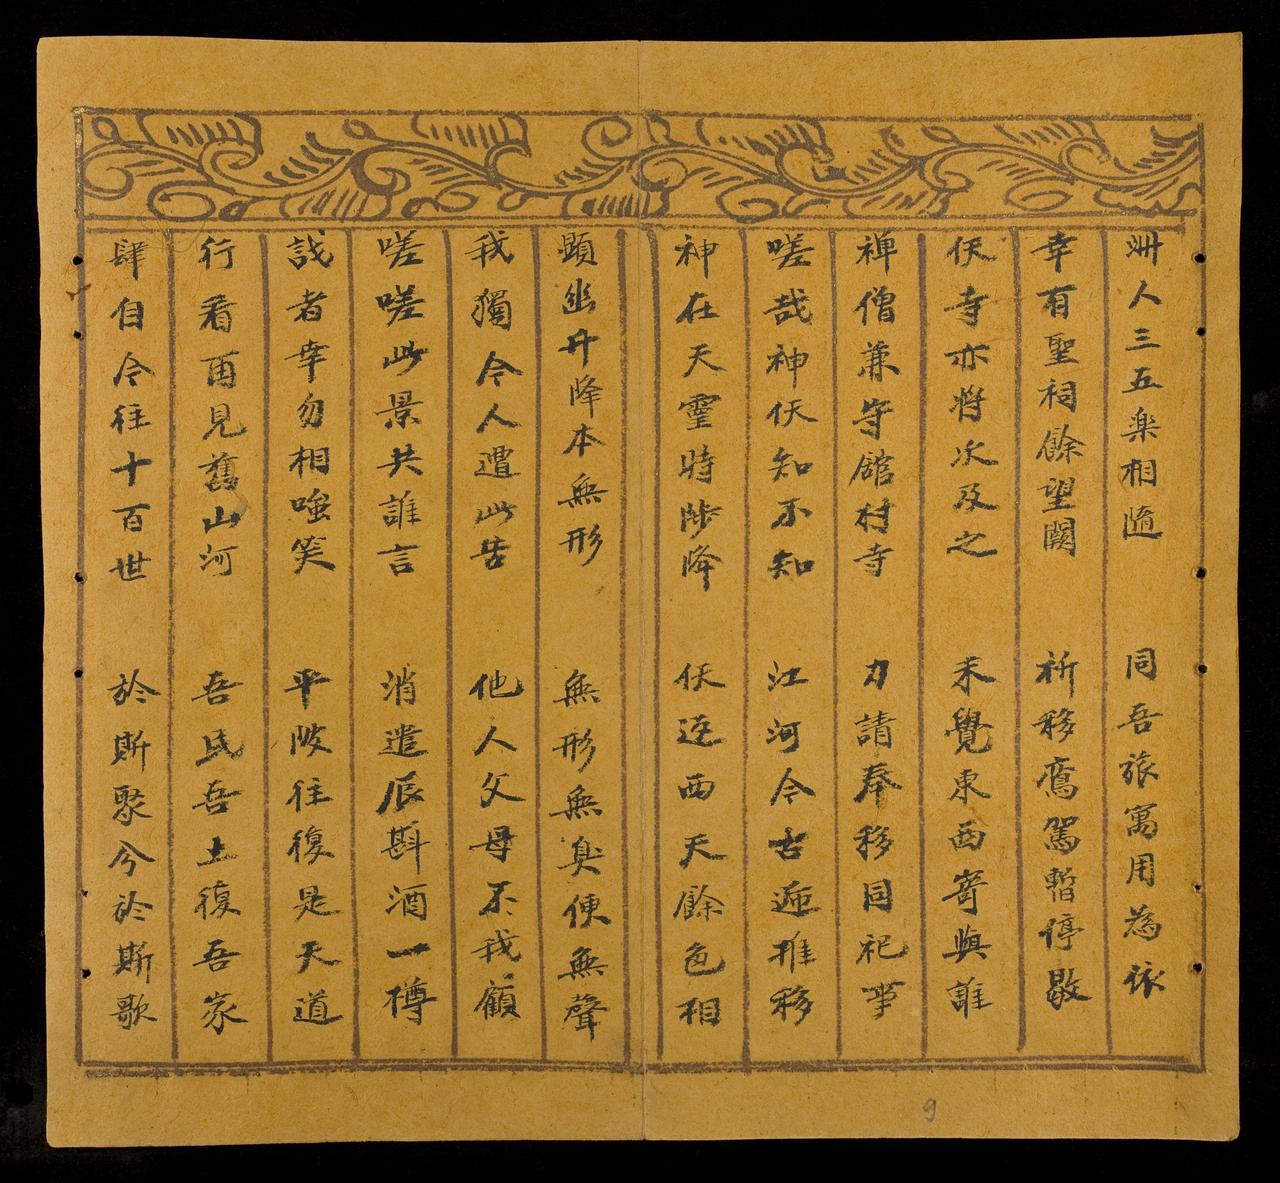 洲人三五楽相隨　同吾旅寓用為依
幸有聖祠餘望闕　祈移鸞駕暫停歇
伏寺亦將次及之　未覺東西寄與誰
禅僧兼守舘村寺　力請奉移同祀事
嗟哉神伏知不知　江河今古遞推移
神在天靈時陟降　伏返西天餘色相
顕幽升降本無形　無形無臭便無聲
我獨今人遭此苦　他人父母不我顧
嗟嗟此景共誰言　消遣辰斟酒一樽
誚者幸勿相嗤笑　平陂往復是天道
行看再見舊山河　吾民吾土復吾家
肆自今往十百世　於斯聚兮於斯歌
9